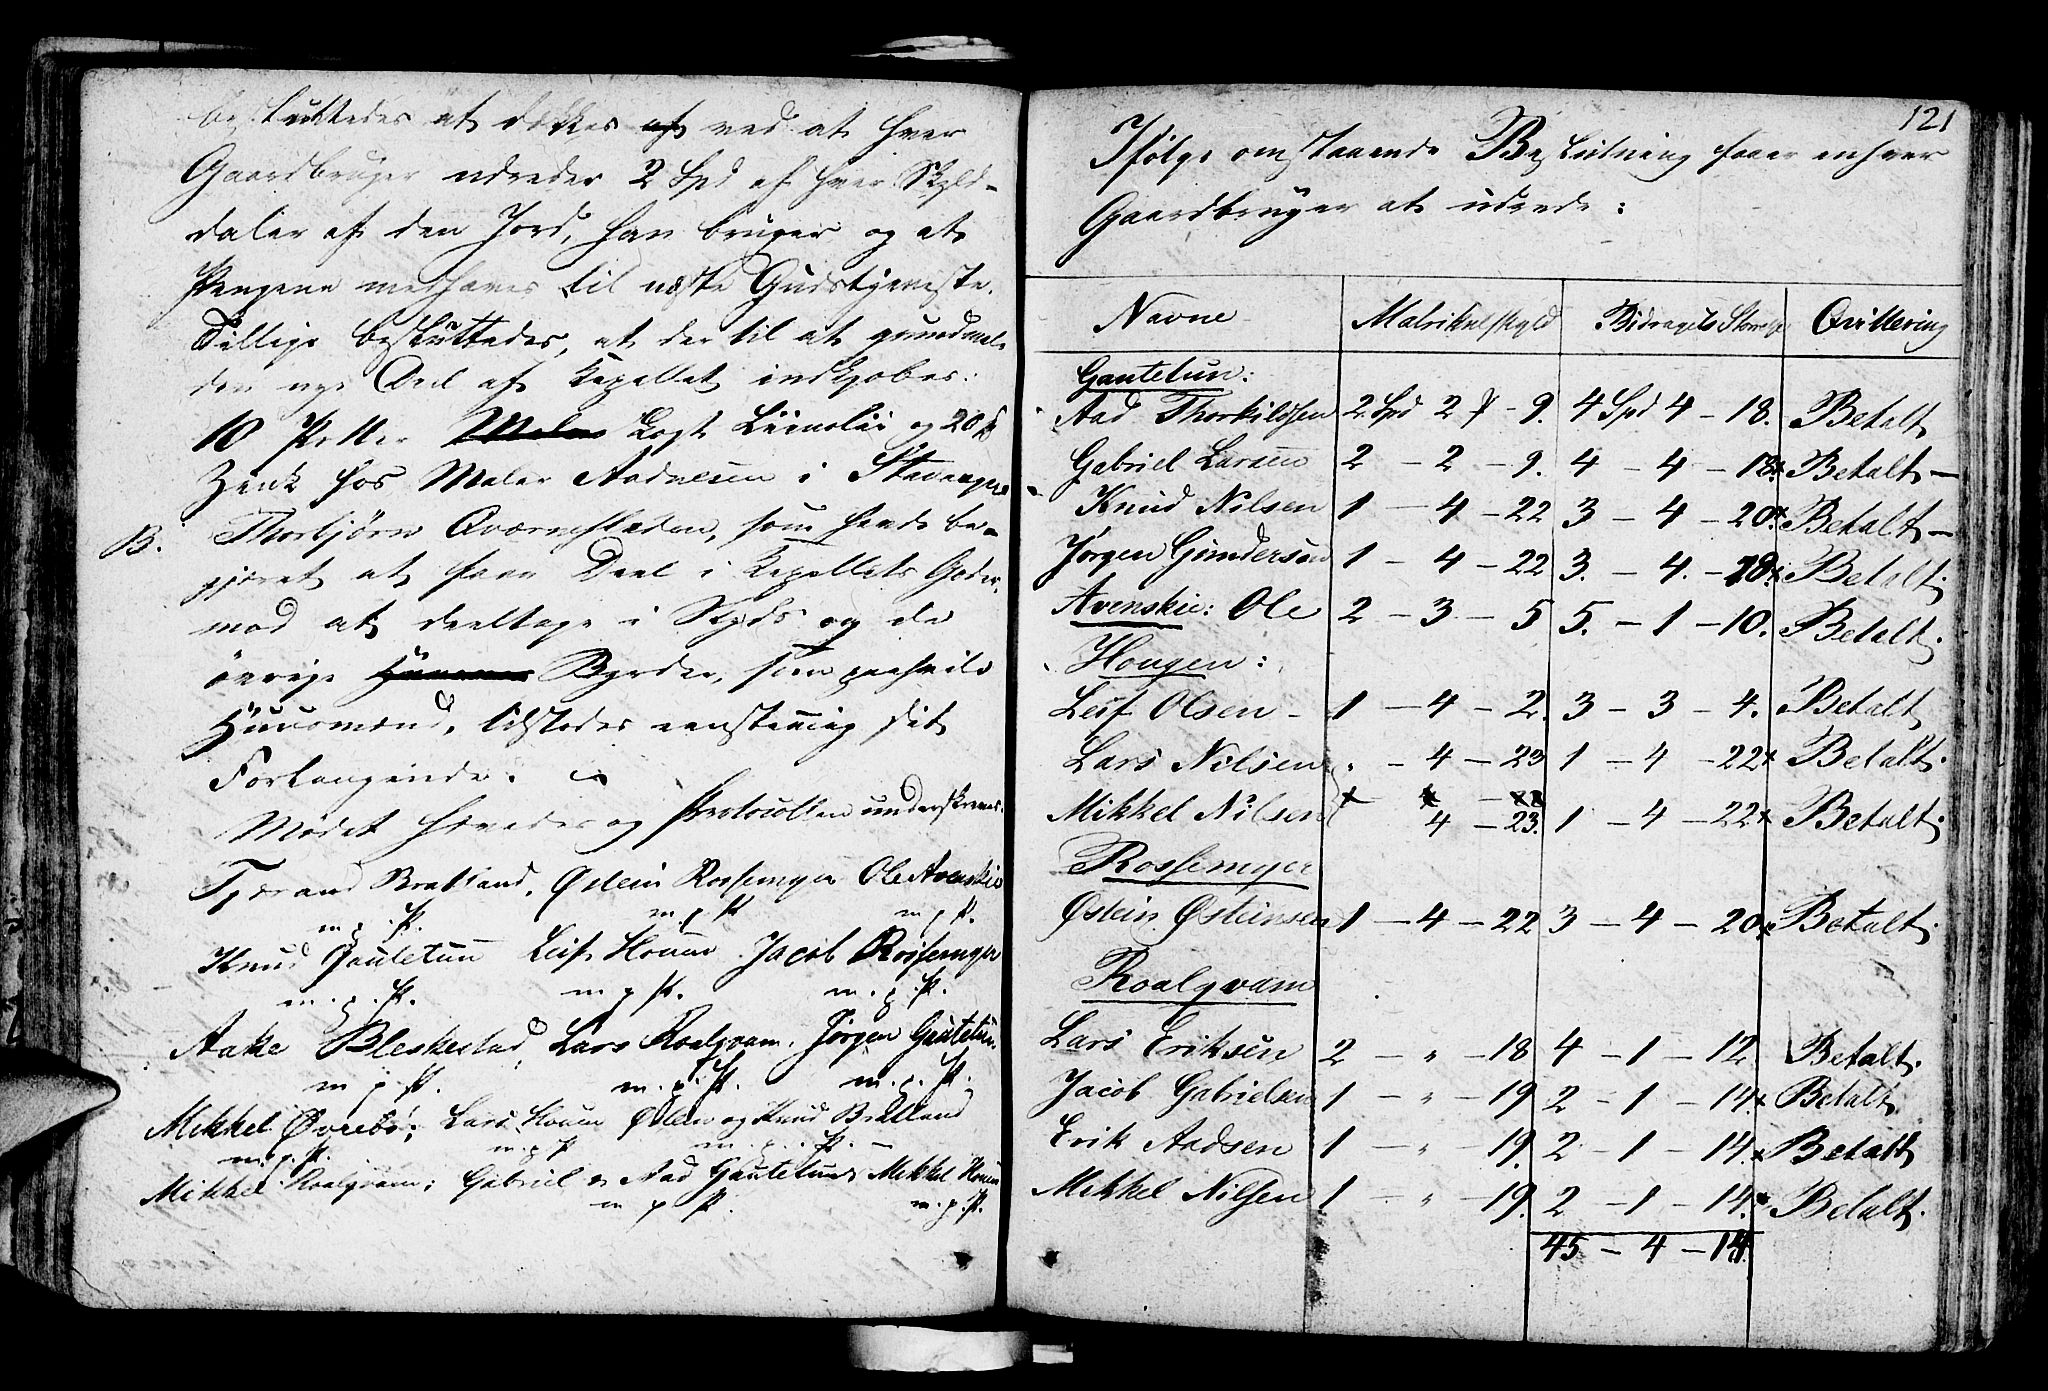 besluttedes at dækkes af ved at hver
Gaardbruger udreder 2 Spd af hver Skyld-
daler af den Jord, han bruger og at
Pengene medhaves til næste Gudstjeneste.
Tillige besluttedes, at der til at grundmale
den nye Deel af Kapellet indkjøbes:
10 Potter Male Kogt Liinolie og 20 ℔
Zink hos Maler Aadnesen i Stavanger
B. Thorbjørn Qværnstøden, som havde be-
gjæret at faae Deel i Kapellets Goder,
mod at deeltage i Skyds og de
øvrige Byrder, som paahvile
Huusmænd, tilstedes eenstemmig sit
Forlangende.
Mødet hævedes og Protocollen underskreves.
Tjærand Bratland, Østein Rossemyr Ole Avenskie
m. p. P. m p P m p P.
Knud Gautetun Leif Houen Jacob Rossemyr
m. p. P. m p P. m. p. P.
Aake Bleskestad, Lars Roalqvam, Jørgen Gautetun
m p. P. m. p. P. m. p. P.
Mikkel Øvrebø; Lars Houen Østen og Knud Bratland
m. p. P. m p P m. p. P. –
Mikkel Roalqvam; Gabriel & Aad Gautetun & Mikkel Houen
m p P. m. p. P.
121
Ifølge omstaaende Beslutning faaer enhver
Gaardbruger at udrede:
Navne Matrikulskyld Bidragets Størrelse Qvittering
Gautetun:
Aad Thorkildsen 2 Spd 2 ƒ - 9. 4 Spd 4 - 18. Betalt
Gabriel Larsen 2 - 2 - 9. 4 - 4 - 18. Betalt –
Knud Nilsen 1 - 4 - 22 3 - 4 - 20. Betalt –
Jørgen Gundersen 1 - 4 - 22 3. - 4. - 18 Betalt.
Avenskie: Ole 2 - 3 - 5 5. - 1 - 10. Betalt.
Hougen:
Leif Olsen - 1 - 4 - 2. 3 - 3 - 4. Betalt
Lars Nilsen " - 4 - 23 1 - 4 - 22 Betalt.
Mikkel Nilsen 4 - 23. 1 - 4 - 22 Betalt.
Rossemyr
Østein Østeinsen 1 - 4 - 22 3 - 4 - 20. Betalt.
Roalqvam
Lars Eriksen 2 - " - 18 4 - 1 - 12 Betalt.
Jacob Gabrielsen 1 - " - 19 2 - 1 - 14. Betalt
Erik Aadsen 1 - " - 19. 2 - 1 - 14. Betalt
Mikkel Nilsen 1 - " - 19. 2 - 1 - 14. Betalt.
45 - 4 - 14